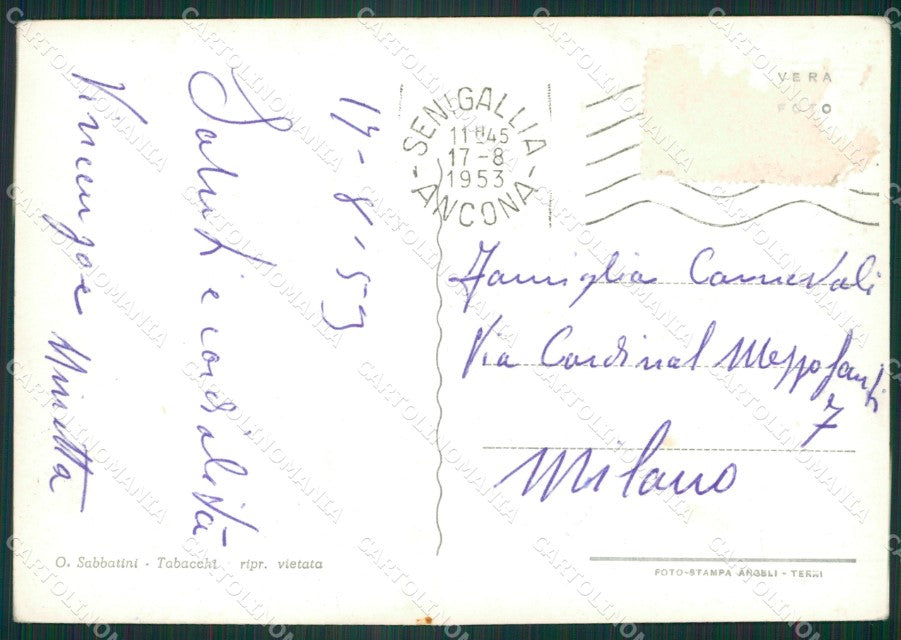 17-8-53
Saluti e cordialità
Vincenzo e Minetta
SENIGALLIA
11H45
17-8
1953
ANCONA
VERA
FOTO
Famiglia Carnevali
Via Cardinal Mezzofanti
7
Milano
O. Sabbatini - Tabacchi ripr. vietata
FOTO-STAMPA ANGELI - TERNI
CARTOLINOMANIA